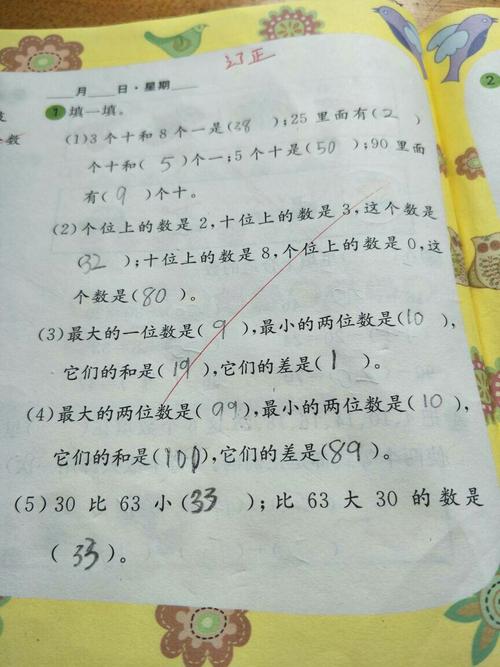 订正
____月____日·星期____
1 填一填。
(1)3个十和8个一是(38);25里面有(2)
个十和(5)个一;5个十是(50);90里面
有(9)个十。
(2)个位上的数是2,十位上的数是3,这个数是
(32);十位上的数是8,个位上的数是0,这
个数是(80)。
(3)最大的一位数是(9),最小的两位数是(10),
它们的和是(19),它们的差是(1)。
(4)最大的两位数是(99),最小的两位数是(10),
它们的和是( ),它们的差是(89)。
(5)30比63小(33);比63大30的数是
(33)。
2